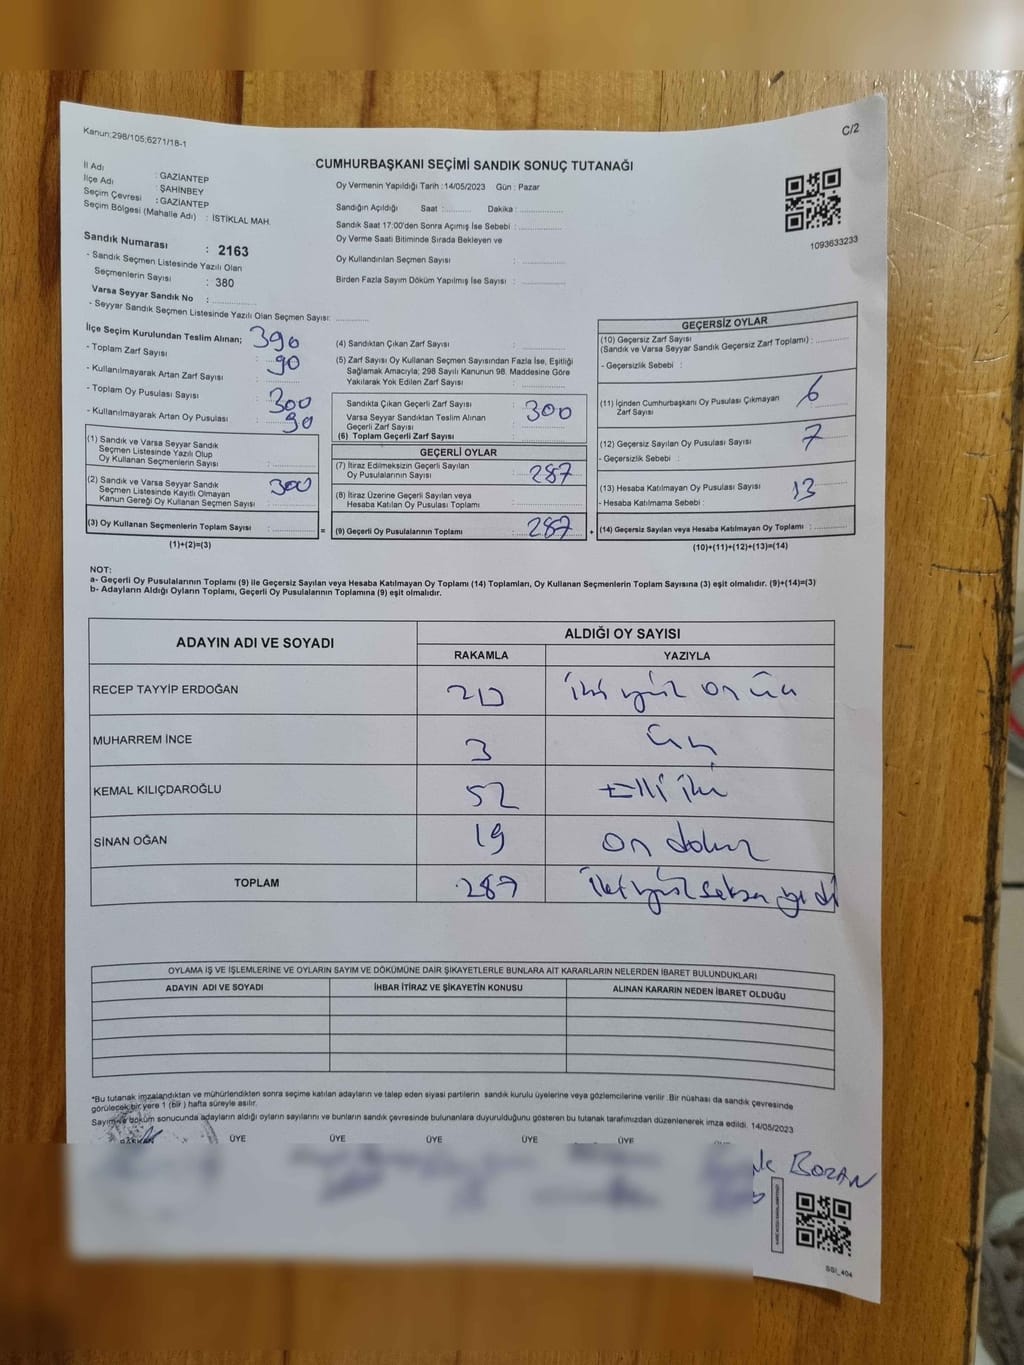 Kanun:298/105;6271/18-1
C/2
CUMHURBAŞKANI SEÇİMİ SANDIK SONUÇ TUTANAĞI
İl Adı : GAZİANTEP
İlçe Adı : ŞAHİNBEY
Seçim Çevresi : GAZİANTEP
Seçim Bölgesi (Mahalle Adı) : İSTİKLAL MAH.
Oy Vermenin Yapıldığı Tarih :14/05/2023 Gün : Pazar
Sandığın Açıldığı Saat :.......... Dakika : ................
Sandık Saat 17:00'den Sonra Açımış İse Sebebi : ................
Oy Verme Saati Bitiminde Sırada Bekleyen ve
Oy Kullandırılan Seçmen Sayısı : ................
Birden Fazla Sayım Döküm Yapılmış İse Sayısı : ................
1093633233
Sandık Numarası : 2163
- Sandık Seçmen Listesinde Yazılı Olan
Seçmenlerin Sayısı : 380
Varsa Seyyar Sandık No : ................
- Seyyar Sandık Seçmen Listesinde Yazılı Olan Seçmen Sayısı: ............
İlçe Seçim Kurulundan Teslim Alınan;
- Toplam Zarf Sayısı : 390
- Kullanılmayarak Artan Zarf Sayısı : 90
- Toplam Oy Pusulası Sayısı : 300
- Kullanılmayarak Artan Oy Pusulası : 90
(1) Sandık ve Varsa Seyyar Sandık
Seçmen Listesinde Yazılı Olup
Oy Kullanan Seçmenlerin Sayısı : ................
(2) Sandık ve Varsa Seyyar Sandık
Seçmen Listesinde Kayıtlı Olmayan
Kanun Gereği Oy Kullanan Seçmen Sayısı : 300
(3) Oy Kullanan Seçmenlerin Toplam Sayısı : ................ =
(1)+(2)=(3)
(4) Sandıktan Çıkan Zarf Sayısı : ................
(5) Zarf Sayısı Oy Kullanan Seçmen Sayısından Fazla İse, Eşitliği
Sağlamak Amacıyla; 298 Sayılı Kanunun 98. Maddesine Göre
Yakılarak Yok Edilen Zarf Sayısı : ................
Sandıkta Çıkan Geçerli Zarf Sayısı : 300
Varsa Seyyar Sandıktan Teslim Alınan
Geçerli Zarf Sayısı : ................
(6) Toplam Geçerli Zarf Sayısı : ................
GEÇERLİ OYLAR
(7) İtiraz Edilmeksizin Geçerli Sayılan
Oy Pusulalarının Sayısı : 287
(8) İtiraz Üzerine Geçerli Sayılan veya
Hesaba Katılan Oy Pusulası Toplamı : ................
(9) Geçerli Oy Pusulalarının Toplamı : 287 +
GEÇERSİZ OYLAR
(10) Geçersiz Zarf Sayısı
(Sandık ve Varsa Seyyar Sandık Geçersiz Zarf Toplamı) : ............
- Geçersizlik Sebebi :
(11) İçinden Cumhurbaşkanı Oy Pusulası Çıkmayan
Zarf Sayısı : 6
(12) Geçersiz Sayılan Oy Pusulası Sayısı : 7
- Geçersizlik Sebebi :
(13) Hesaba Katılmayan Oy Pusulası Sayısı : 13
- Hesaba Katılmama Sebebi :
(14) Geçersiz Sayılan veya Hesaba Katılmayan Oy Toplamı : ............
(10)+(11)+(12)+(13)=(14)
NOT:
a- Geçerli Oy Pusulalarının Toplamı (9) ile Geçersiz Sayılan veya Hesaba Katılmayan Oy Toplamı (14) Toplamları, Oy Kullanan Seçmenlerin Toplam Sayısına (3) eşit olmalıdır. (9)+(14)=(3)
b- Adayların Aldığı Oyların Toplamı, Geçerli Oy Pusulalarının Toplamına (9) eşit olmalıdır.
ADAYIN ADI VE SOYADI ALDIĞI OY SAYISI
RAKAMLA YAZIYLA
RECEP TAYYİP ERDOĞAN 213 iki yüz on üç
MUHARREM İNCE 3 üç
KEMAL KILIÇDAROĞLU 52 Elli iki
SİNAN OĞAN 19 on dokuz
TOPLAM 287 iki yüz seksen yedi
OYLAMA İŞ VE İŞLEMLERİNE VE OYLARIN SAYIM VE DÖKÜMÜNE DAİR ŞİKAYETLERLE BUNLARA AİT KARARLARIN NELERDEN İBARET BULUNDUKLARI
ADAYIN ADI VE SOYADI İHBAR İTİRAZ VE ŞİKAYETİN KONUSU ALINAN KARARIN NEDEN İBARET OLDUĞU
*Bu tutanak imzalandıktan ve mühürlendikten sonra seçime katılan adayların ve talep eden siyasi partilerin sandık kurulu üyelerine veya gözlemcilerine verilir. Bir nüshası da sandık çevresinde
görülecek bir yere 1 (bir) hafta süreyle asılır.
Sayım ve döküm sonucunda adayların aldığı oyların sayılarını ve bunların sandık çevresinde bulunanlara duyurulduğunu gösteren bu tutanak tarafımızdan düzenlenerek imza edildi. 14/05/2023
BAŞKAN ÜYE ÜYE ÜYE ÜYE ÜYE
BOZAN
SSI_404